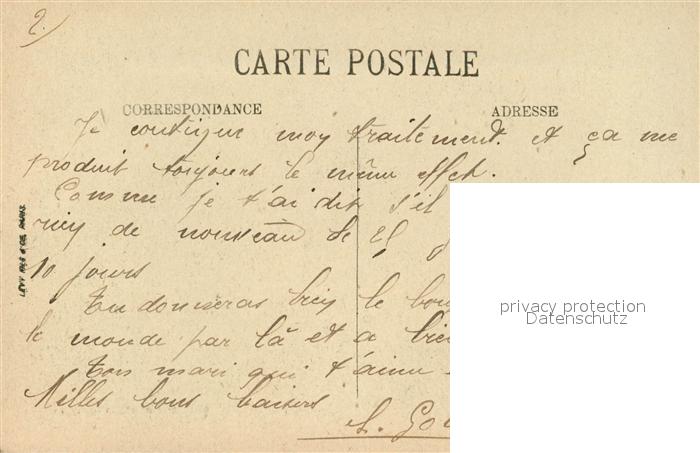 2.
CARTE POSTALE
CORRESPONDANCE
ADRESSE
Je continue mon traitement. et ça me
produit toujours le même effet.
Comme je t'ai dit s'il
rien de nouveau le 25
10 jours
Tu donneras bien le bon
le monde par là et a bien
Ton mari qui t'aime
Milles bons baisers
LEVY FILS & CIE PARIS
privacy protection
Datenschutz